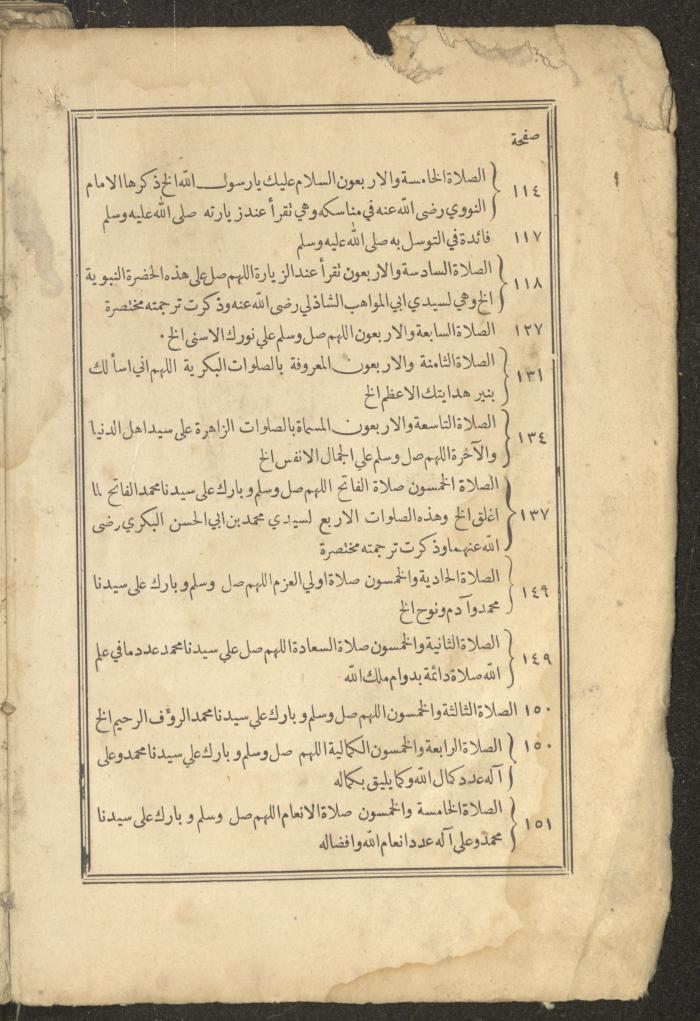 صفحة
١١٤ الصلاة الخامسة والاربعون السلام عليك يارسول الله الخ ذكرها الامام
النووي رضى الله عنه في مناسكه وهي تقرأ عند زيارته صلى الله عليه وسلم
١١٧ فائدة في التوسل به صلى الله عليه وسلم
١١٨ الصلاة السادسة والاربعون تقرأ عند الزيارة اللهم صل على هذه الحضرة النبوية
الخ وهي لسيدي ابي المواهب الشاذلي رضى الله عنه وذكرت ترجمته مختصرة
١٢٧ الصلاة السابعة والاربعون اللهم صل وسلم على نورك الاسنى الخ
١٣١ الصلاة الثامنة والاربعون المعروفة بالصلوات البكرية اللهم اني اسألك
بنير هدايتك الاعظم الخ
١٣٤ الصلاة التاسعة والاربعون المسماة بالصلوات الزاهرة على سيد اهل الدنيا
والآخرة اللهم صل وسلم على الجمال الانفس الخ
١٣٧ الصلاة الخمسون صلاة الفاتح اللهم صل وسلم وبارك على سيدنا محمد الفاتح لما
اغلق الخ وهذه الصلوات الاربع لسيدي محمد بن ابي الحسن البكري رضى
الله عنهما وذكرت ترجمته مختصرة
١٤٩ الصلاة الحادية والخمسون صلاة اولي العزم اللهم صل وسلم وبارك على سيدنا
محمد وآدم ونوح الخ
١٤٩ الصلاة الثانية والخمسون صلاة السعادة اللهم صل على سيدنا محمد عدد ما في علم
الله صلاة دائمة بدوام ملك الله
١٥٠ الصلاة الثالثة والخمسون اللهم صل وسلم وبارك على سيدنا محمد الرؤف الرحيم الخ
١٥٠ الصلاة الرابعة والخمسون الكمالية اللهم صل وسلم وبارك على سيدنا محمد وعلى
آله عدد كمال الله وكما يليق بكماله
١٥١ الصلاة الخامسة والخمسون صلاة الانعام اللهم صل وسلم وبارك على سيدنا
محمد وعلى آله عدد انعام الله وافضاله